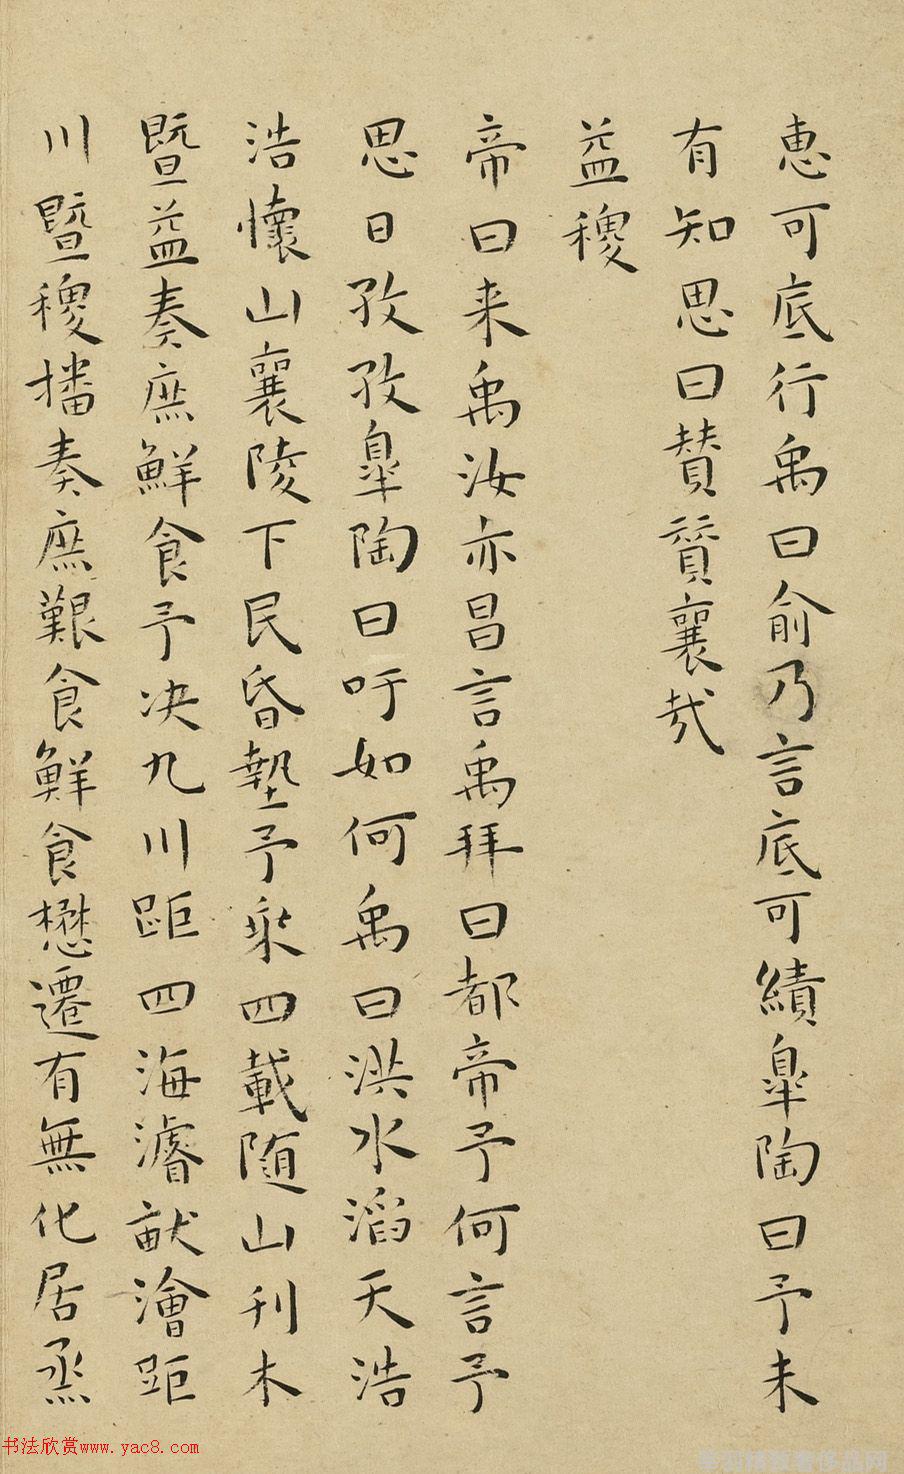 惠可底行禹曰俞乃言底可績臯陶曰予未
有知思曰賛賛襄哉
益稷
帝曰来禹汝亦昌言禹拜曰都帝予何言予
思日孜孜臯陶曰吁如何禹曰洪水滔天浩
浩懷山襄陵下民昏墊予乘四載随山刊木
暨益奏庶鮮食予决九川距四海濬畎澮距
川暨稷播奏庶艱食鮮食懋遷有無化居烝
书法欣赏www.yac8.com